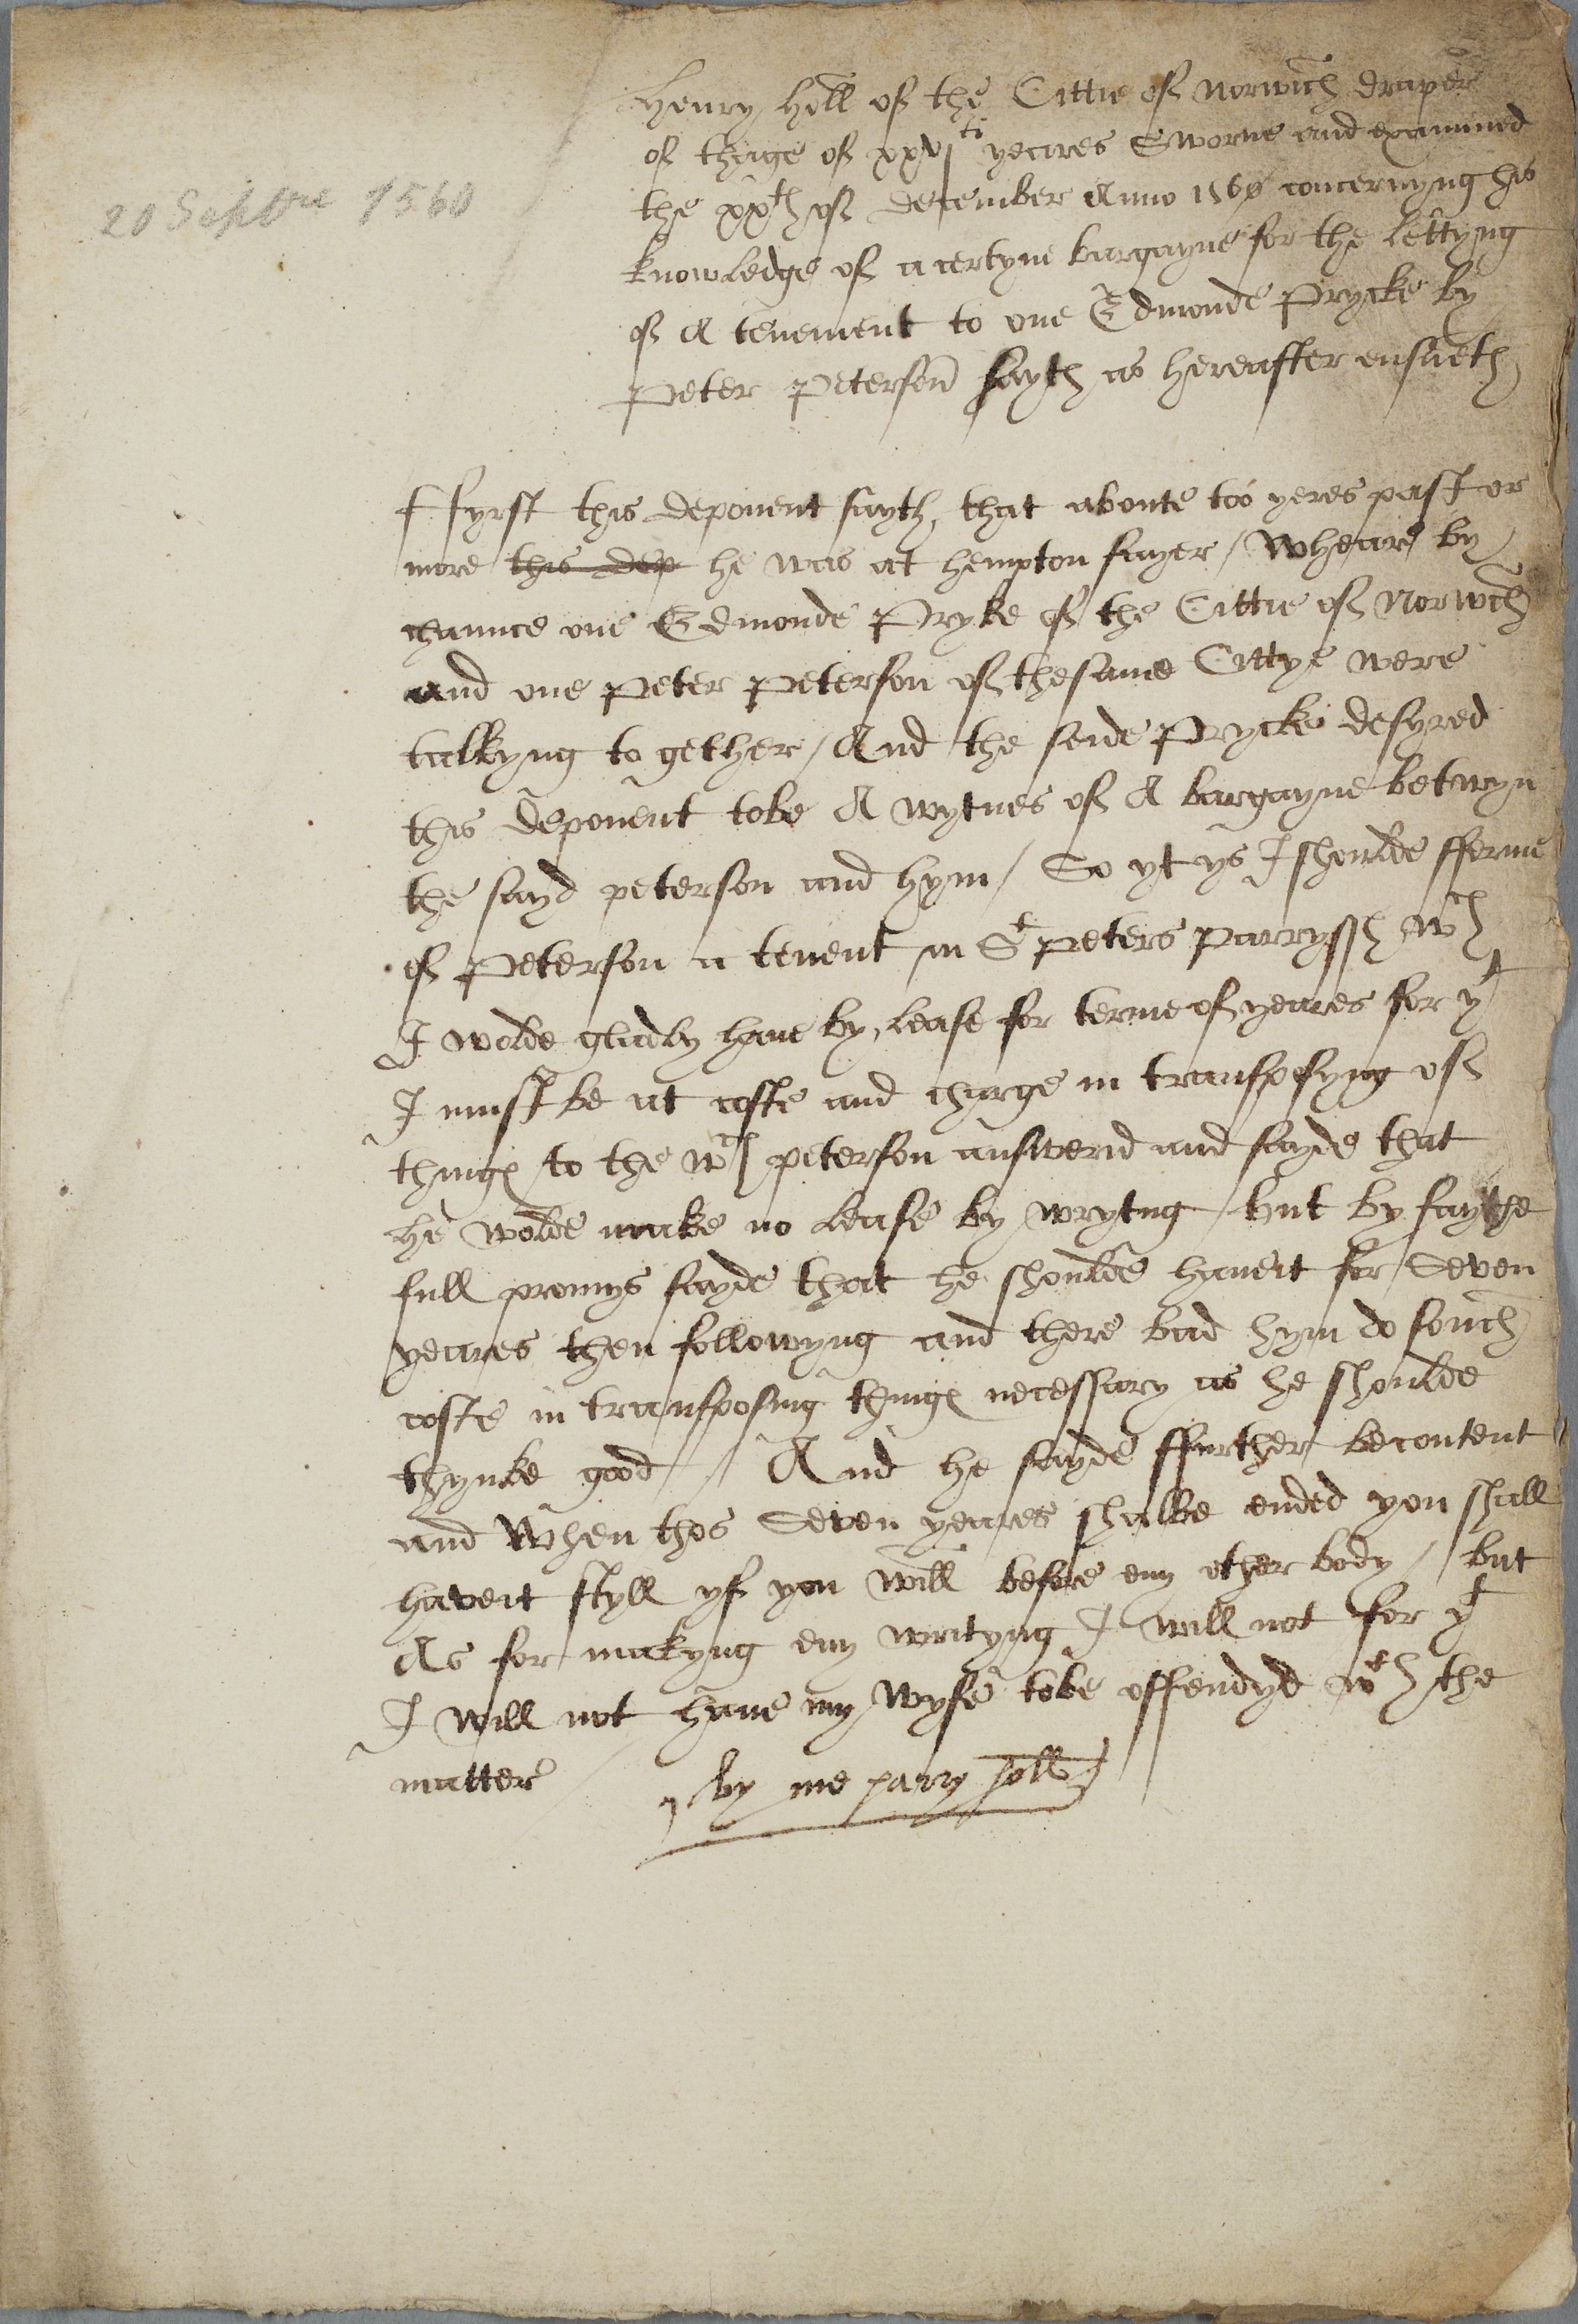 20 Septbre 1560
Henry Holl of the Cittie of Norwich draper
of thage of xxvj ti yeares Sworne and examined
the xxth of december Anno 1560 concernyng his
knowledge of a certyne bargayne for the lettyng
of A tenement to one Edmonde Prycke by
Peter Peterson sayth as hereafter ensueth
Ffyrst this deponent sayth, that aboute too yeres past or
more this dep he was at hempton fayer / Wheare by
chaunce one Edmonde Pryke of the Cittie of Norwch
and one Peter Peterson of thesame Cittye were
talkyng to gether / And the seide Prycke desyred
this deponent tobe A wytnes of A bargayne betwyn
the sayd peterson and hym / So yt ys I shoulde fferme
of Peterson a tenent in St Peters parryssh wch
I wolde gladly haue by lease for terme of yeares for yt
I must be at coste and charge in transposyng of
things to the wch peterson answerid and sayde that
he wolde make no lease by wrytng / but by faythe
full promys sayde that he shoulde haueit for Seven
yeares then followyng and there bad hym do souch
coste in transposing things necessary as he shoulde
thynke good / And he sayde ffurther becontent
and When thos Seven yeares shalbe ended you shall
haveit styll yf you will before eny other body / but
As for makyng eny writyng I will not for yt
I will not haue my Wyfe tobe offendyd wth the
matter by me harry holl